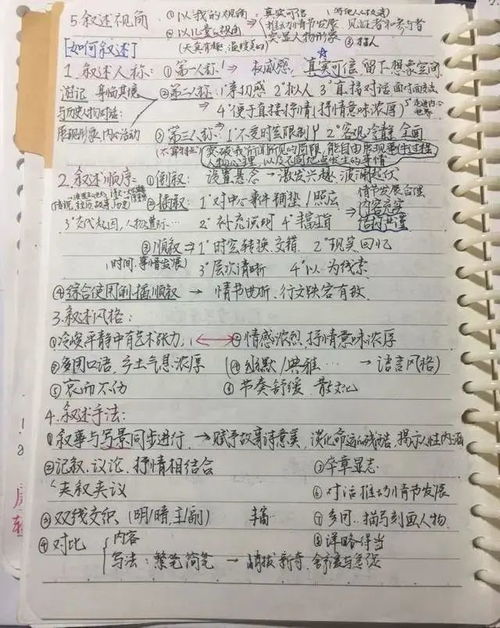 5.叙述视角 ①以我的视角 真实可信
②以儿童视角 推动情节发展 见证者和参与者
(天真有趣、温馨美好) 突显人物形象 ③
[如何叙述]
1.叙述人称:①第一人称↑ 权威感,真实可信,留下想象空间
游记 身临其境 ②第二人称↑ 1°亲切感 2°拟人 3°直接对话 面对面读者
与历史人物对话: 4°便于直接抒情(抒情意味浓厚)
展现形象,内心活动 ③第三人称↑ 1°不受时空限制 2°客观冷静 全面
突破我所闻所见的局限,能自由展现事件过程
人物心理,以及不同地点发生的事情
2.叙述顺序:①倒叙: 设置悬念→激发兴趣,波澜起伏
②插叙:1°对中心事件铺垫/照应 情节发展合理
3°交代起因,人物 2°补充说明 4°丰富 内容充实
③顺叙→1°时空转换,交错 2°现实回忆
(时间.事情发展) 3°层次清晰 4°以 为线索
④综合使用倒插顺叙→情节曲折,行文跌宕有致.
3.叙述风格:
①冷峻平静中有艺术张力, ②情感浓烈,抒情意味浓厚
③多用口语,乡土气息浓厚 (④幽默/典雅… →语言风格)
⑤哀而不伤 ⑥节奏舒缓 散文化
4.叙述手法:
①叙事与写景同步进行,→赋予故事诗意美,淡化命运的残酷,揭示人性内涵
②记叙、议论、抒情相结合 ⑤卒章显志
夹叙夹议 ⑥对话推动情节发展
③双线交织(明/暗 主/副) ⑦多问..描写刻画人物.
④对比 内容 ⑧详略得当
写法:繁笔简笔→